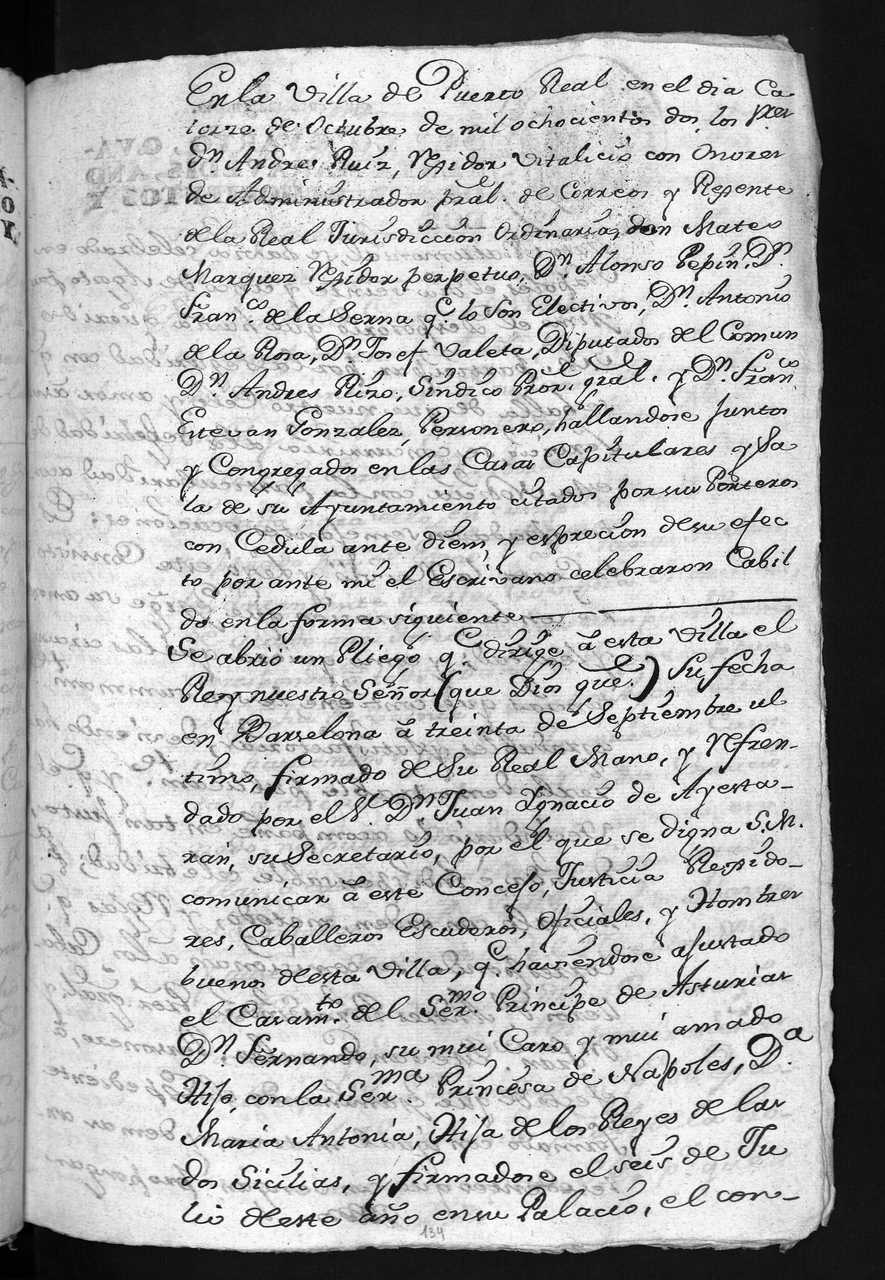 En la Villa de Puerto Real en el dia Ca
torze de Octubre de mil ochocientos dos, los
Dn. Andres Ruiz, Rexidor Vitalicio con Onores
de Administrador pral. de Correos y Regente
de la Real Jurisdiccion Ordinaria, don Mateo
Marquez Rexidor perpetuo, Dn. Alonso Pepin, Dn.
Franco. de la Serna q. lo son Electivos, Dn. Antonio
de la Rosa, Dn. Josef Valeta, Diputados del Comun
Dn. Andres Rizo, Sindico Pror. gral. y Dn. Franco.
Estevan Gonzalez, Personero, hallandose juntos
y Congregados en las Casas Capitulares y Sa
la de su Ayuntamiento citados por sus Porteros
con Cedula ante diem, y espresion de su efec
to por ante mi el Escrivano celebraron Cabil
do en la forma siguiente
Se abrio un Pliego q. dirige á esta Villa el
Rey nuestro Señor (que Dios gue.) Su fecha
en Barzelona á treinta de Septiembre ul
timo, firmado de Su Real Mano, y refren-
dado por el Sr. Dn. Juan Ygnacio de Ayesta-
rán, su Secretario, por el que se digna S.M.
comunicar á este Concejo, Justicia Regido-
res, Caballeros Escuderos, Oficiales, y Hombres
buenos de esta Villa, q. haviendose ajustado
el Casamto. del Sermo. Principe de Asturias
Dn. Fernando, su mui Caro y mui amado
Hijo, con la Serma. Princesa de Napoles, Da.
Maria Antonia, Hija de los Reyes de las
dos Sicilias, y firmadose el seis de Ju
lio de este año en su Palacio, el con-
134